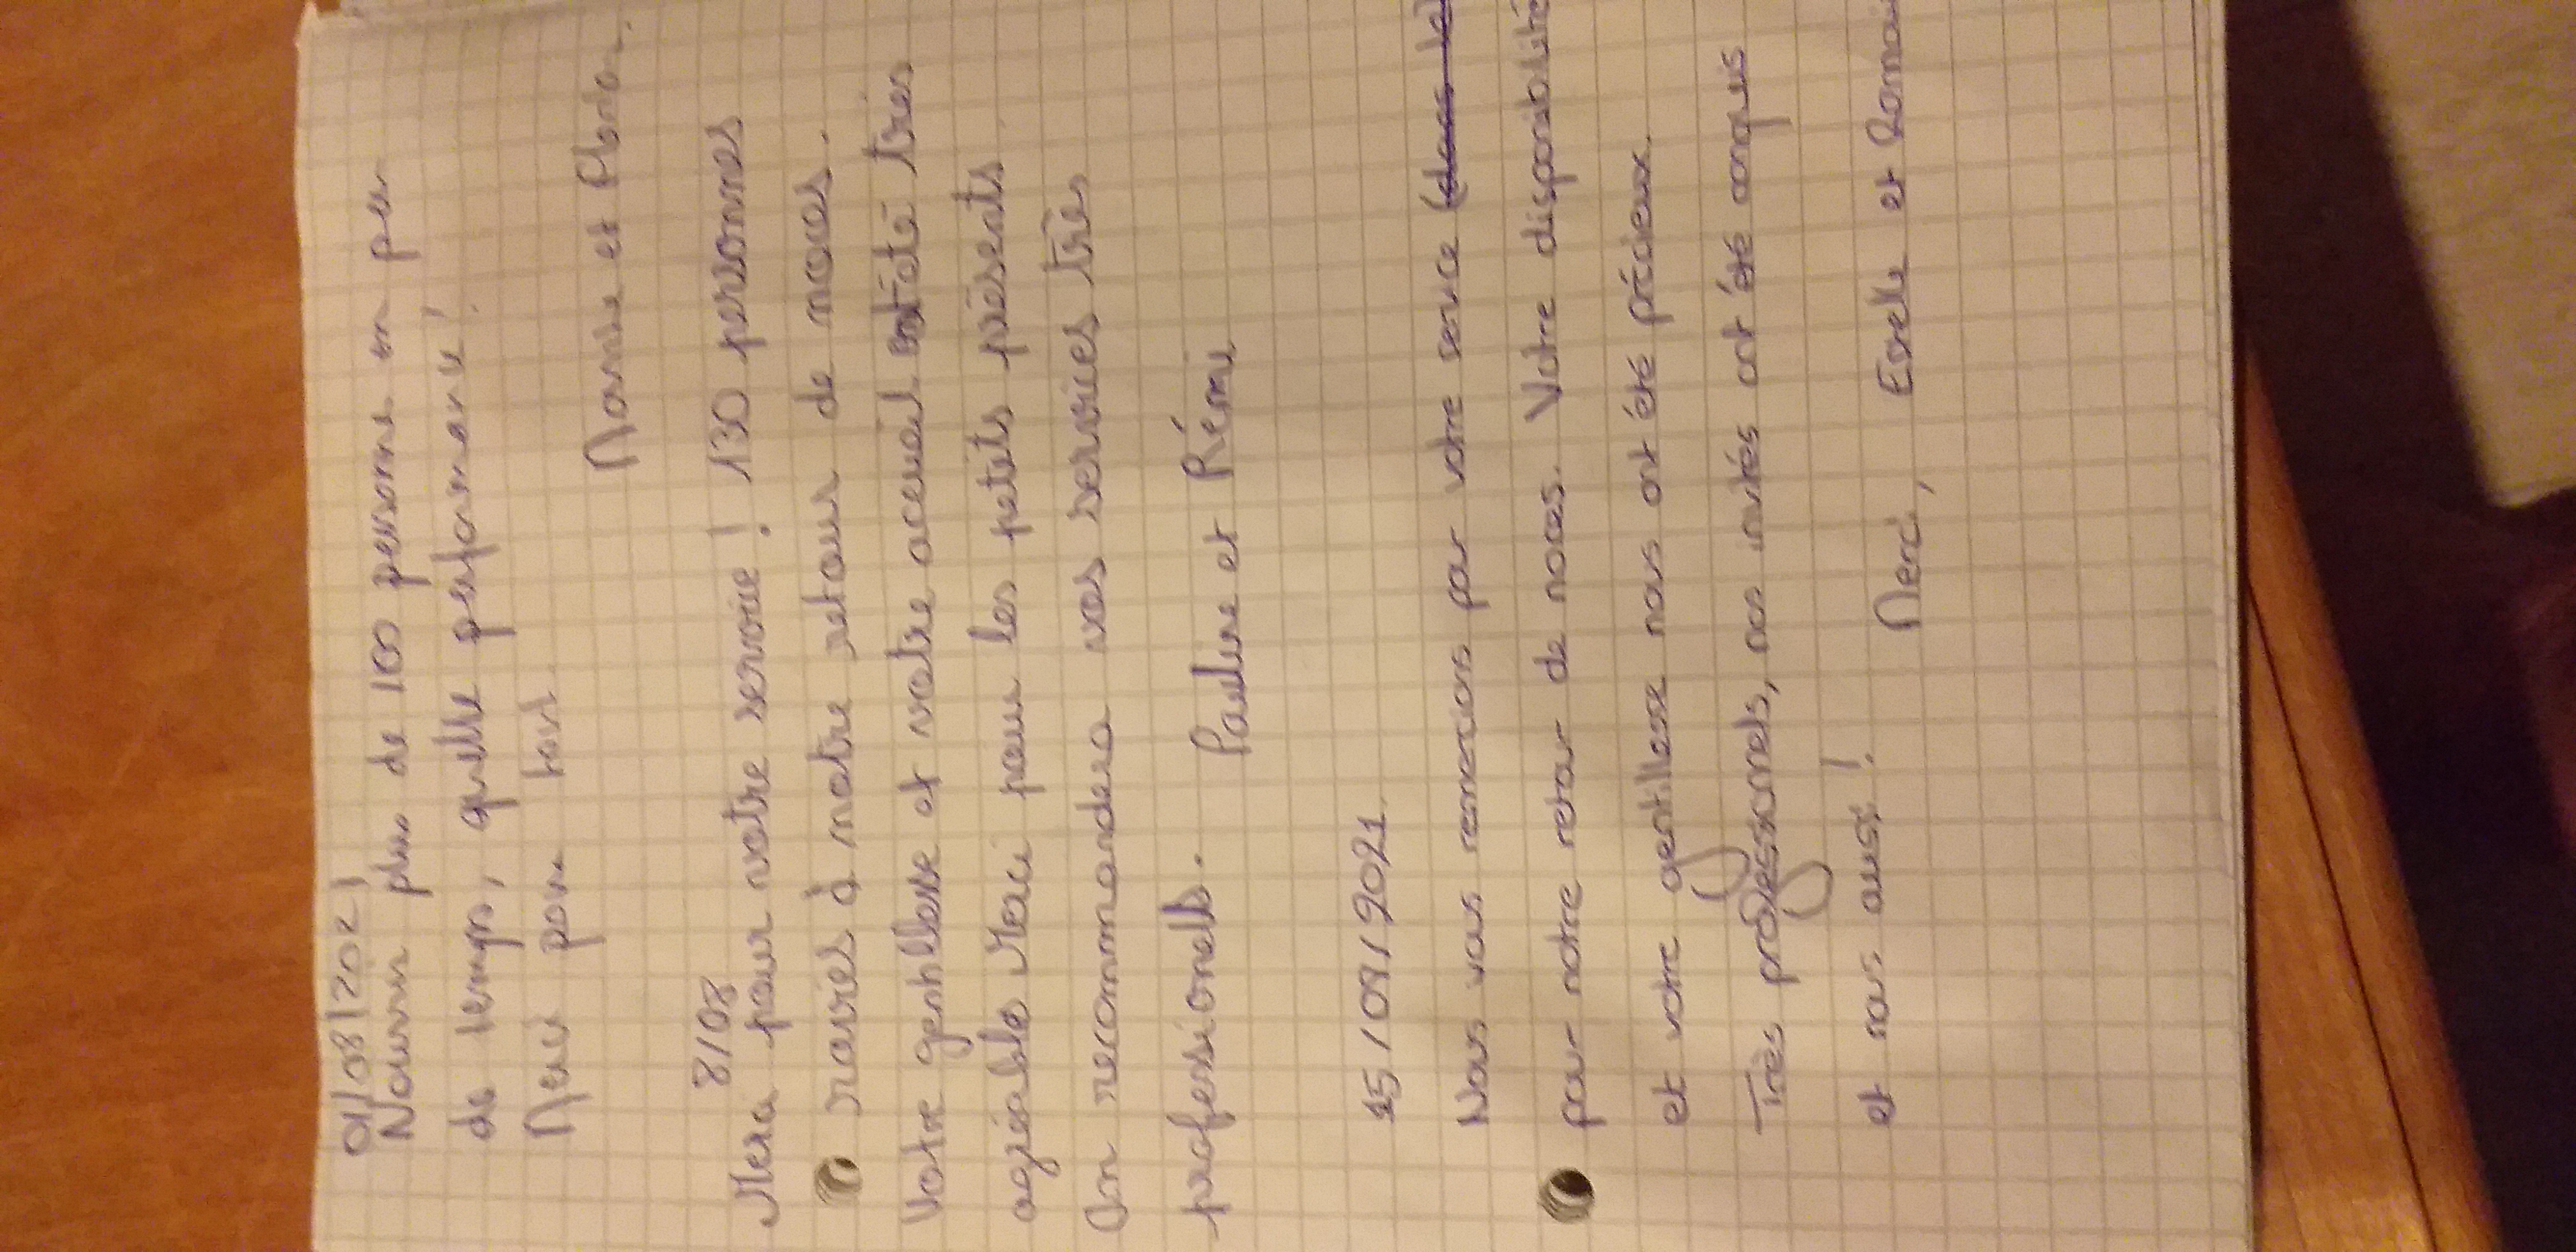 01/08/2021
Nourrir plus de 100 personne en peu
de temps, quelle performance !
Merci pour tout.
et
8/08
Merci pour votre service ! 130 personnes
ravies à notre retour de noces.
Votre gentillesse et votre acceuil ont été très
agréables Merci pour les petits présents
On recommandera vos services très
professionnels.
Pauline et Rémi
15/09/2021
Nous vous remercions par votre service
pour notre retour de noces. Votre disponibilité
et votre gentillesse nous ont été précieux.
Très professionnels, nos invités ont été conquis
et nous aussi !
Merci, Estelle et Romain